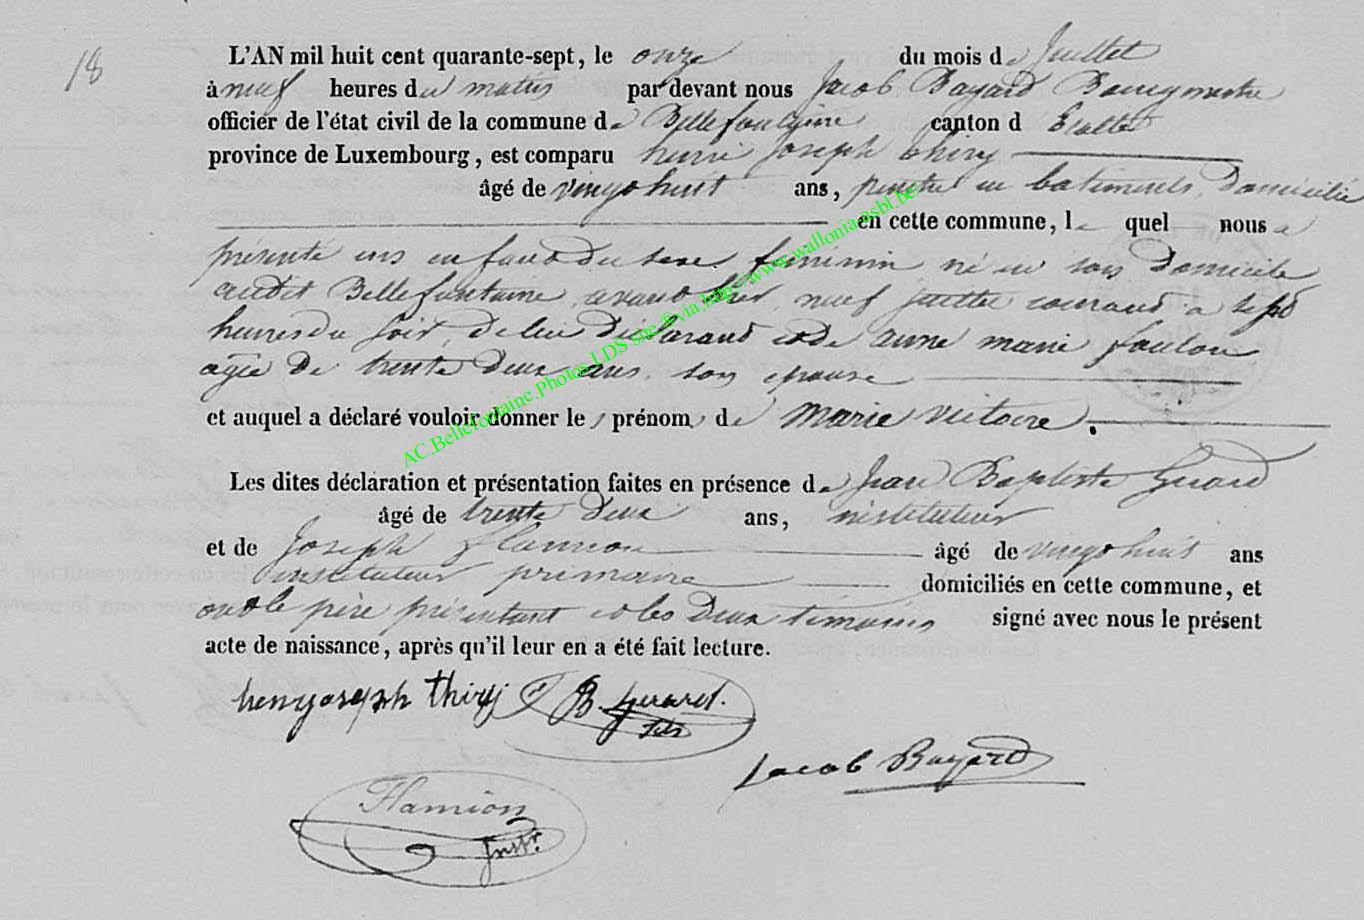 18
L'AN mil huit cent quarante-sept, le onze du mois de Juillet
à neuf heures du matin par devant nous Jacob Bayard Bourgmestre
officier de l'état civil de la commune de Bellefontaine canton d'Etalle
province de Luxembourg, est comparu henri Joseph thiry
âgé de vingt huit ans, peintre en batiments, domicilié
en cette commune, le quel nous a
présenté un enfant du sexe féminin né en son domicile
audit Bellefontaine, avant hier, neuf juillet courant à sept
heures du soir, de lui déclarant et de anne marie foulon
agée de trente deux ans, son épouse
et auquel a déclaré vouloir donner les prénoms de marie victoire.
Les dites déclaration et présentation faites en présence de Jean Baptiste Gerard
âgé de trente deux ans, instituteur
et de Joseph flamion âgé de vingt huit ans
instituteur primaire domiciliés en cette commune, et
ont le père présentant et les deux témoins signé avec nous le présent
acte de naissance, après qu'il leur en a été fait lecture.
henry joseph thiry J B. gerard.
fils
Jacob Bayard
Flamion
Instr.
AC.Bellefontaine.Photos.LDS site @via http://www.wallonia-asbl.be/